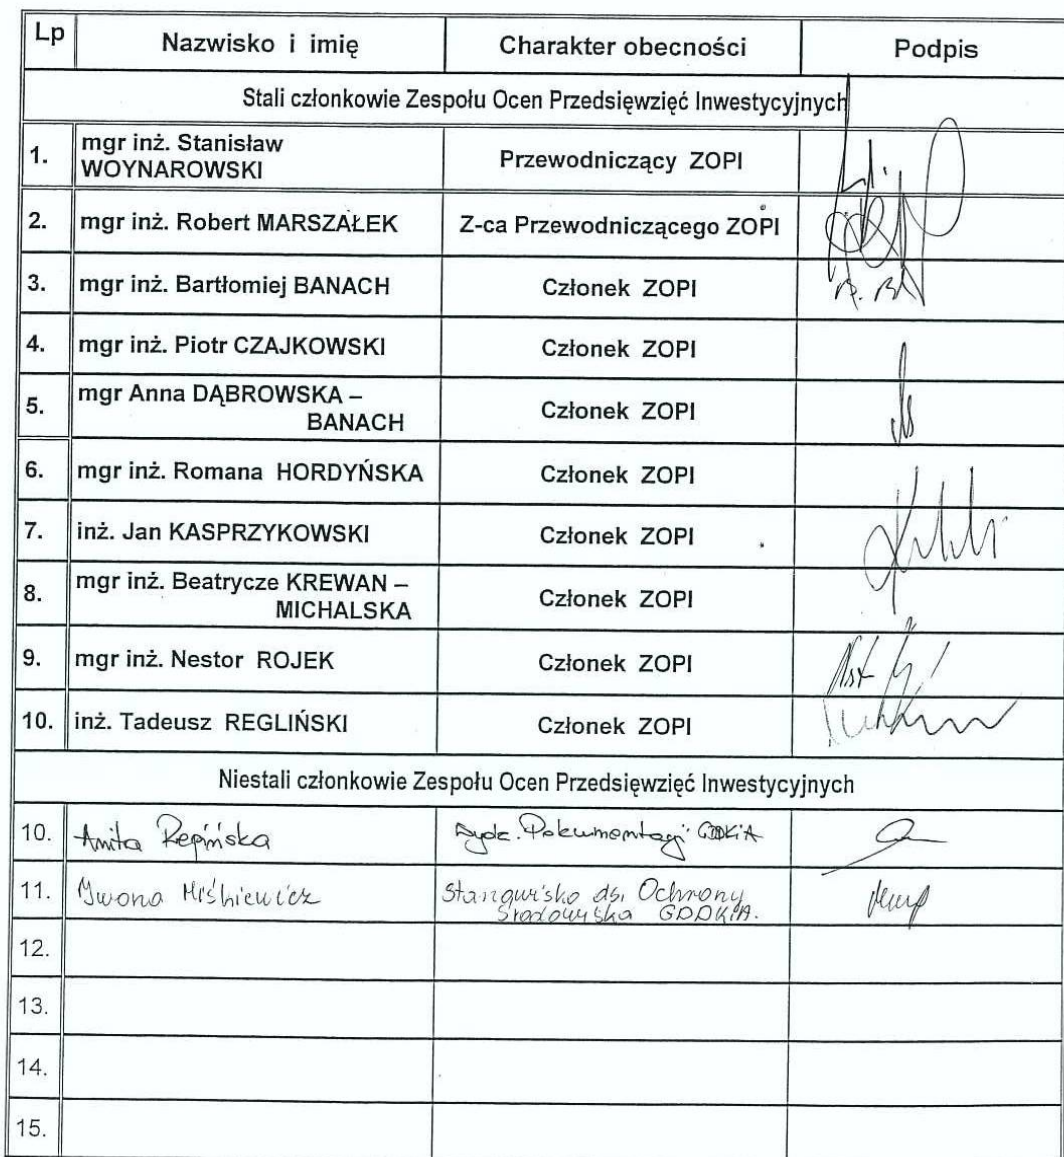 Lp Nazwisko i imię Charakter obecności Podpis
Stali członkowie Zespołu Ocen Przedsięwzięć Inwestycyjnych
1. mgr inż. Stanisław
WOYNAROWSKI Przewodniczący ZOPI
2. mgr inż. Robert MARSZAŁEK Z-ca Przewodniczącego ZOPI
3. mgr inż. Bartłomiej BANACH Członek ZOPI
4. mgr inż. Piotr CZAJKOWSKI Członek ZOPI
5. mgr Anna DĄBROWSKA –
BANACH Członek ZOPI
6. mgr inż. Romana HORDYŃSKA Członek ZOPI
7. inż. Jan KASPRZYKOWSKI Członek ZOPI
8. mgr inż. Beatrycze KREWAN –
MICHALSKA Członek ZOPI
9. mgr inż. Nestor ROJEK Członek ZOPI
10. inż. Tadeusz REGLIŃSKI Członek ZOPI
Niestali członkowie Zespołu Ocen Przedsięwzięć Inwestycyjnych
10. Anita Dokumentacji GDDKiA
11. Iwona Miśkiewicz Stanowisko ds. Ochrony
Środowiska GDDKiA.
12.
13.
14.
15.